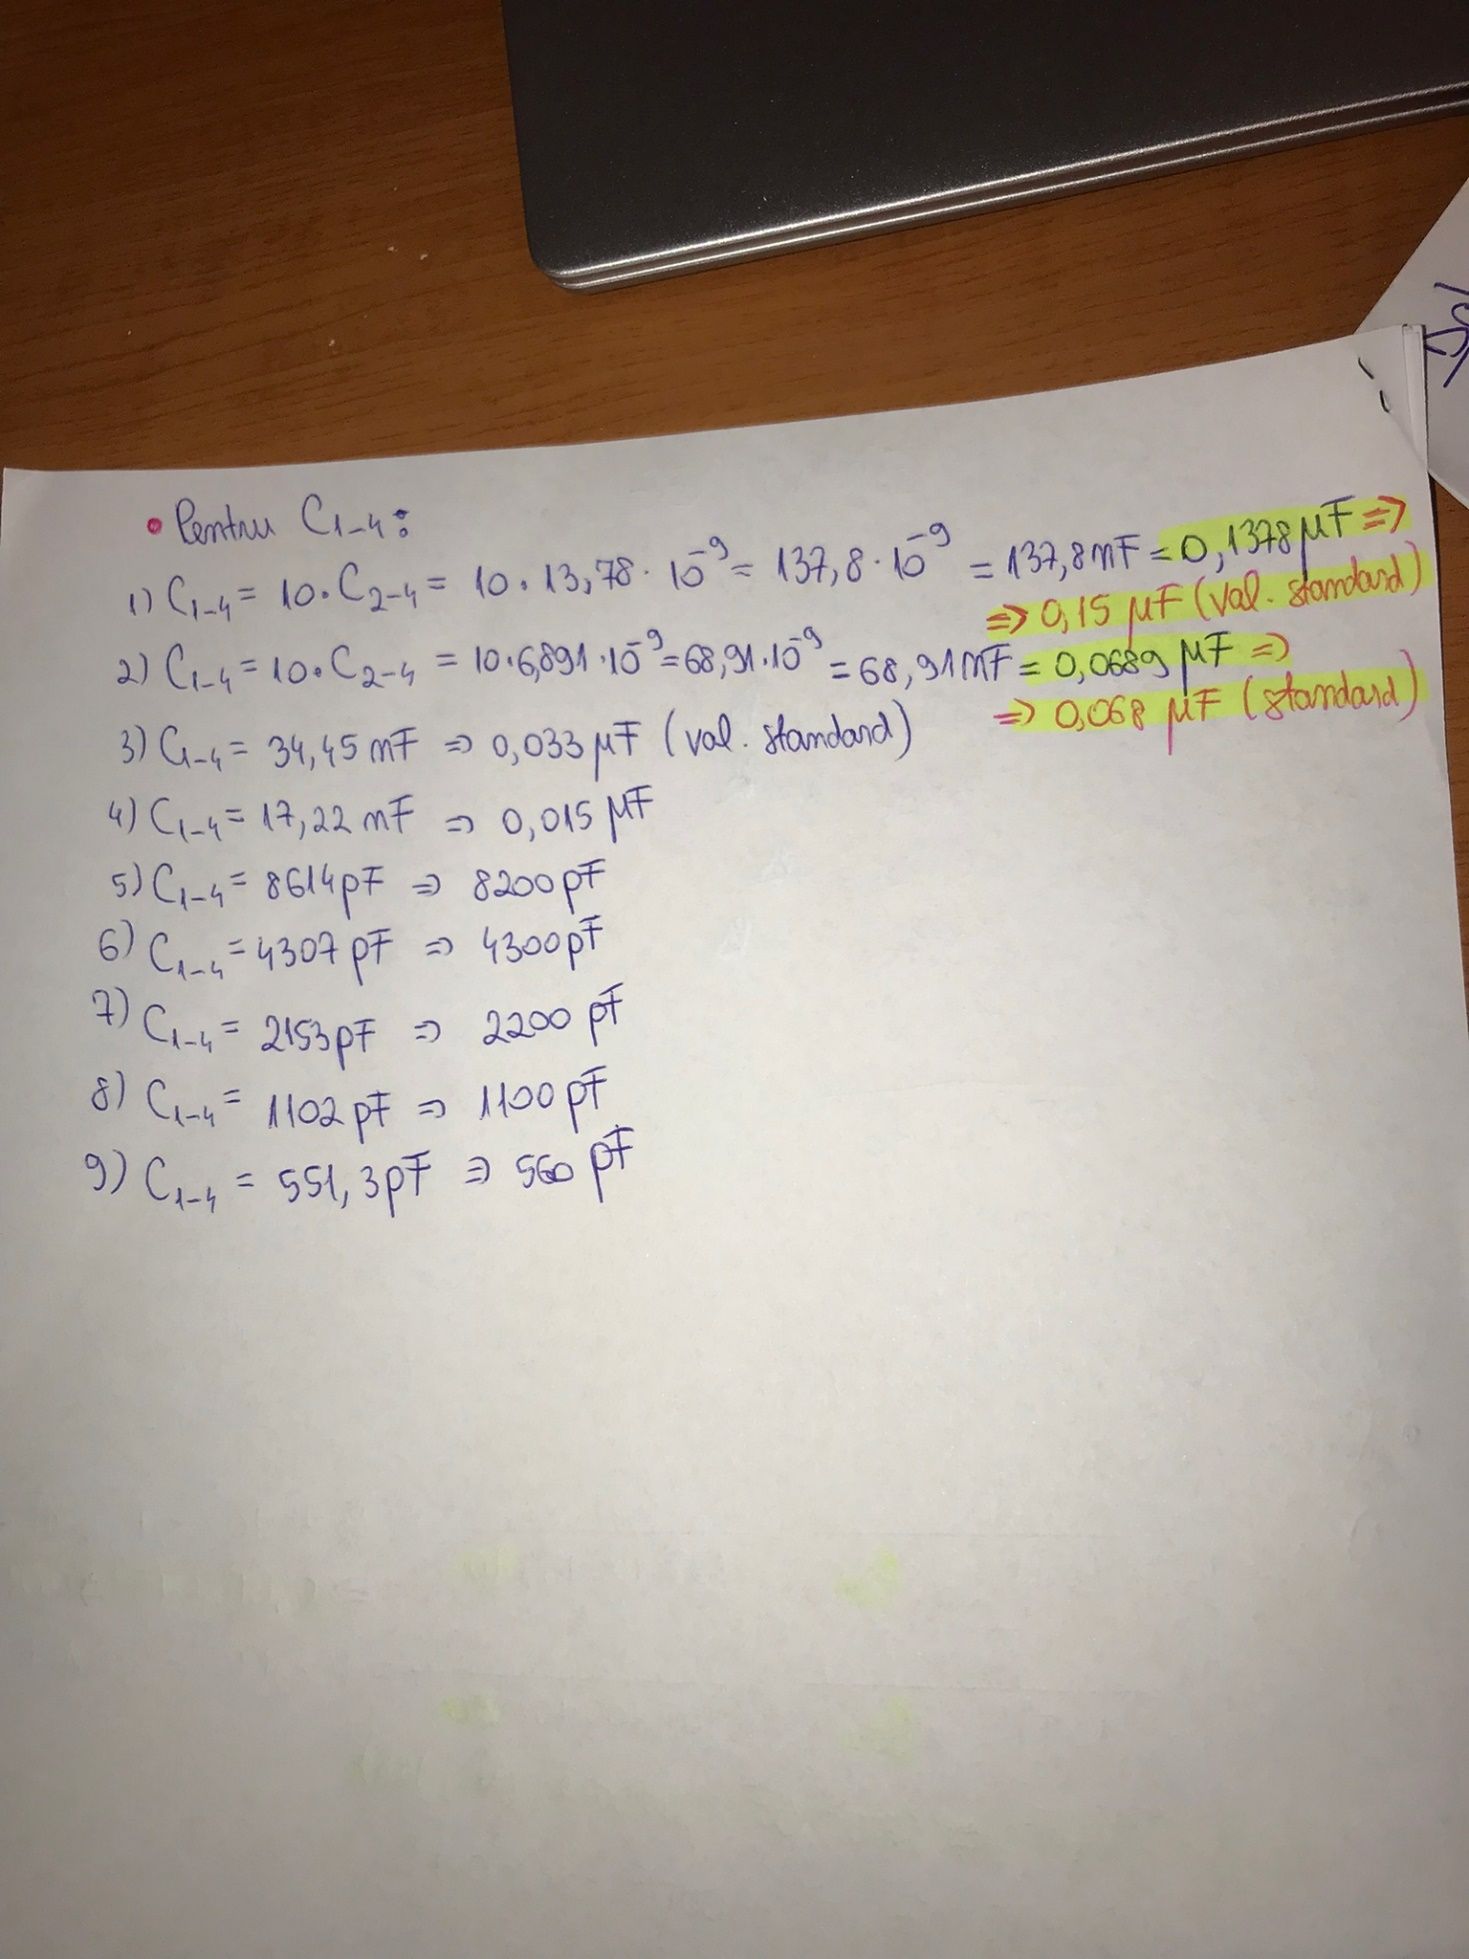 • Pentru C1-4:
1) C1-4 = 10·C2-4 = 10·13,78·10⁻⁹ = 137,8·10⁻⁹ = 137,8 nF = 0,1378 μF =>
=> 0,15 μF (val. standard)
2) C1-4 = 10·C2-4 = 10·6,891·10⁻⁹ = 68,91·10⁻⁹ = 68,91 nF = 0,0689 μF =>
=> 0,068 μF (standard)
3) C1-4 = 34,45 nF => 0,033 μF (val. standard)
4) C1-4 = 17,22 nF => 0,015 μF
5) C1-4 = 8614 pF => 8200 pF
6) C1-4 = 4307 pF => 4300 pF
7) C1-4 = 2153 pF => 2200 pF
8) C1-4 = 1102 pF => 1100 pF
9) C1-4 = 551,3 pF => 560 pF